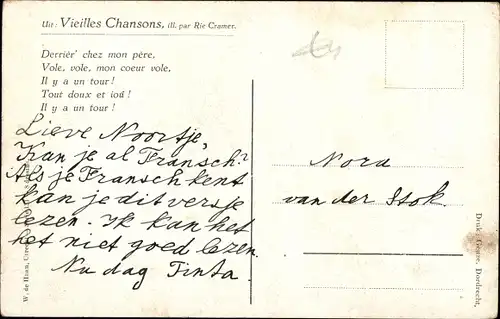 Uit: Vieilles Chansons, ill. par Rie Cramer.
Derrièr' chez mon père,
Vole, vole, mon coeur vole,
Il y a un tour!
Tout doux et ioú!
Il y a un tour!
Lieve Noortje,
Kan je al Fransch?
Als je Fransch kent
kan je dit versje
lezen. Ik kan het
het niet goed lezen.
Nu dag Tinta.
Nora
van der Stok.
W. de Haan, Utrecht
Druk: Geuze, Dordrecht.